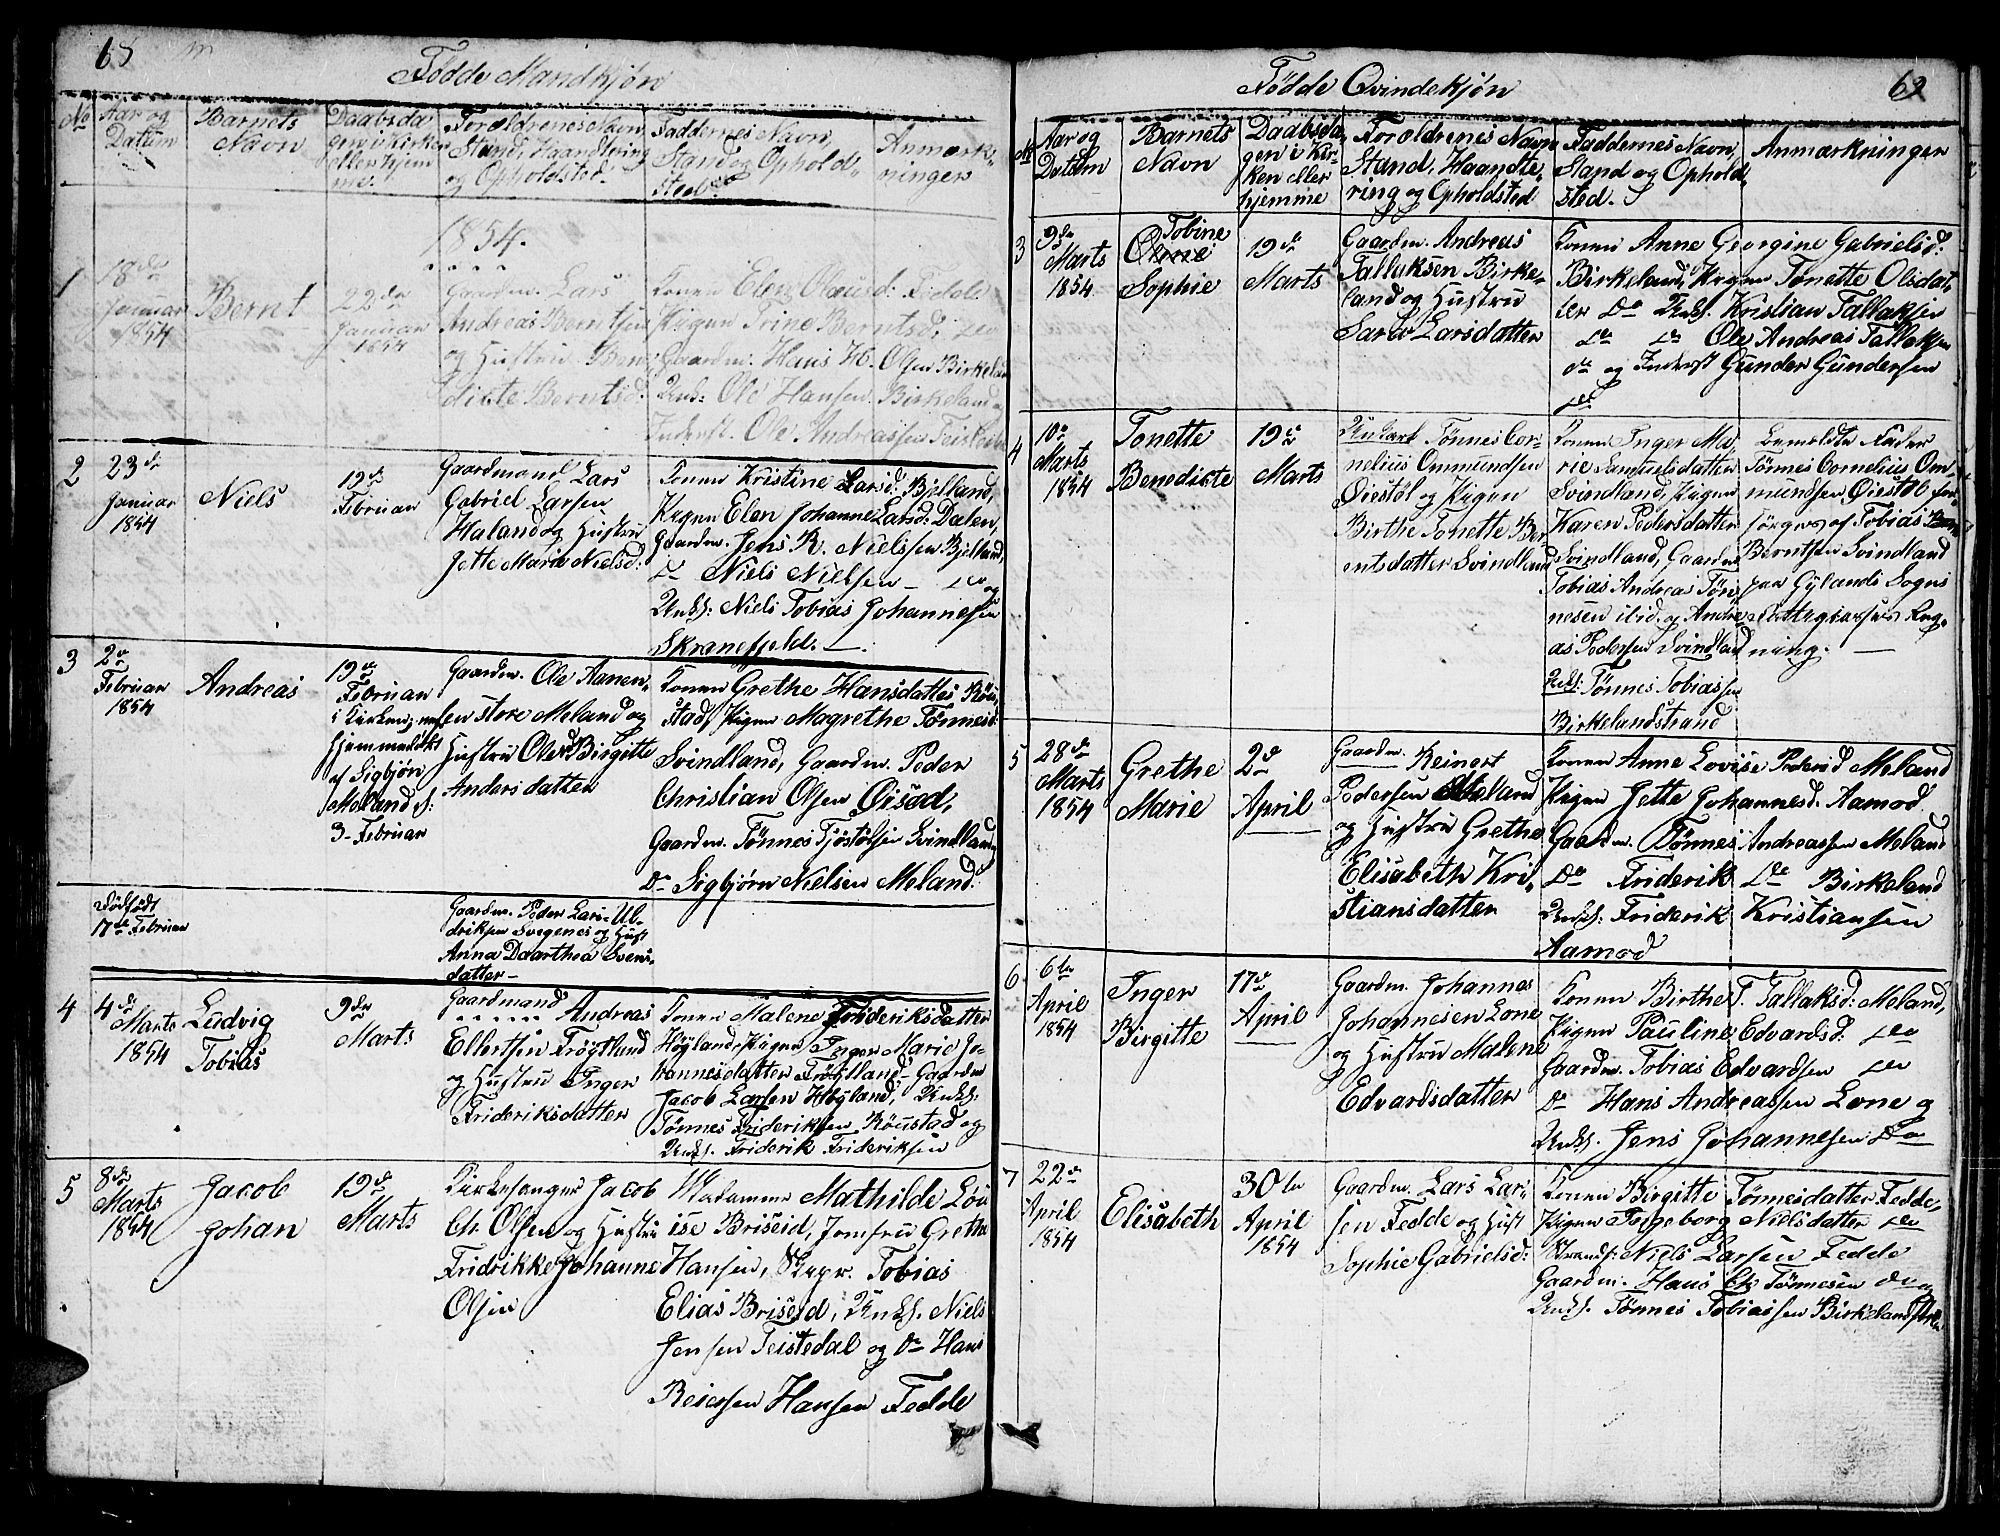 68
Födde Mandkjøn
No
Aar og
Datum
Barnets
Navn
Daabsda
gen i Kirken
eller hjem
me.
Forældrenes Navn
Stand, Haandtering
og Opholdsted.
Faddernes Navn,
Stand og Ophold
Sted.
Anmærk-
ninger
1854.
1
18de
Januar
1854
Bernt
22de
Januar
1854
Gaardm. Lars
Andreas Berntsen
og Hustru Ben
dicte Berntsd.
Konen Elen Olausd. Fedde
Pigen Trine Berntsd. do
Gaardm. Hans H. Olsen Birkeland
Unk: Ole Hansen Birkeland og
Inderst. Ole Andreassen
2
23de
Januar
1854
Niels
19de
Februar
Gaardmand Lars
Gabriel Larsen
Haland og Hustru
Jette Marie Nielsd:
Konen Kristine Larsd: Bjelland,
Pigen Elen Johanne Larsd: Dalen,
Gaardm. Jens R. Nielssen Bjelland,
Do Niels Nielsen do og
Unks: Niels Tobias Johannesen
Skranefjeld.
3
2de
Februar
1854
Andreas
19de
Februar
i Kirken;
hjemmedøbt
af Sigbjön
Meland d:
3 Februar
Gaardm. Ole Aanen-
sen store Meland og
Hustru Olene Birgitte
Andersdatter
Konen Grethe Hansdatter Röu-
stad, Pigen Magrethe Tönnesd:
Svindland, Gaardm. Peder
Christian Olsen Öisæd,
Gaardm. Tönnes Tjöstölsen Svindland
Do Sigbjørn Nielsen Meland.
Dödfödt
17de Februar
Gaardm. Peder Lars Ul-
driksen Svegenes og Hust
Anna Daarthea Svens-
datter
4
4de
Marts
1854
Ludvig
Tobias
9de
Marts
Gaardmand Andreas
Ellertsen Frögtland
og Hustru Inger
Frideriksdatter
Konen Malene Frideriksdatter
Høyland, Pigen Inger Marie Jo-
hannesdatter Frögtland, Gaardm
Jacob Larsen Høyland, Unks:
Tönnes Frideriksen Röustad og
Unks. Friderik Frideriksen
5
8de
Marts
1854
Jacob
Johan
19de
Marts
Kirkesanger Jacob
Chr. Olsen og Hustru
Fridrikke Johanne
Olsen
Madamme Mathilde Lou
ise Briseid, Jomfru Grethe
Hansen, Skpr. Tobias
Elias Briseid, Unks. Niels
Jensen Teistedal og Do Hans
Reiersen Hansen Fedde
69
Födde Qvindekjön
No
Aar og
Datum
Barnets
Navn
Daabsda-
gen i Kir-
ken eller
hjemme
Forældrenes Navn
Stand, Haandte-
ring og Opholdsted
Faddernes Navn,
Stand og Ophold
sted.
Anmærkninger
3
9de
Marts
1854
Tobine
Sophie
19de
Marts
Gaardm. Andreas
Tallaksen Birke-
land og Hustru
Sara Larsdatter
Konen Anne Georgine Gabrielsd.
Birkeland, Pigen Tonette Olsdat-
ter Do Unks. Kristian Tallaksen
do do Ole Andreas Tallaksen
do og Inderst Gunder Gundersen
do
4
10de
Marts
1854
Tonette
Benedicte
19de
Marts
Unkarl Tönnes Cor-
nelius Ommundsen
Öiestöl og Pigen
Birthe Tonette Ber
entsdatter Svindland
Konen Inger Ma-
rie Samuelsdatter
Svindland, Pigen
Karen Pedersdatter
Svindland, Gaardm
Tobias Andreas Tön-
nesen ibid. og Andre-
as Pedersen Svindland
Unks: Tönnes Tobiassen
Birkelandstrand
Tönnes Cornelius Om-
mundsen Öiestöl
sørges af Tobias
Berntsen Svindland
paa Gylands Sogns
Reg-
ning.
5
28de
Marts
1854
Grethe
Marie
2de
April
Gaardm. Reinert
Pedersen Meland
og Hustru Grethe
Elisabeth Kri-
stiansdatter
Konen Anne Lovise Pedersd Meland
Pigen Jette Johannesd. Aamod
Gaardm. Tönnes Andreassen Meland
Do Friderik Do Birkeland
Unks. Friderik Kristiansen
Aamod
6
6te
April
1854
Inger
Birgitte
17de
April
Gaardm. Johannes
Johannesen Lone
og Hustru Malene
Edvardsdatter
Konen Birthe T. Tallaksd: Meland,
Pigen Pauline Edvardsd. do
Gaardm. Tobias Edvardsen do
Do Hans Andreassen Lone og
Unks. Jens Johannesen Do
7
22de
April
1854
Elisabeth
30te
April
1854
Gaardm. Lars Lar-
sen Fedde og Hust
Sophie Gabrielsd:
Konen Birgitte Tönnesdatter Fedde,
Pigen Ingeborg Nielsdatter do
Strands: Niels Larsen Fedde
Gaardm. Hans Ek Tönnesen do og
Unks. Tönnes Tobiassen Birkelandstrand